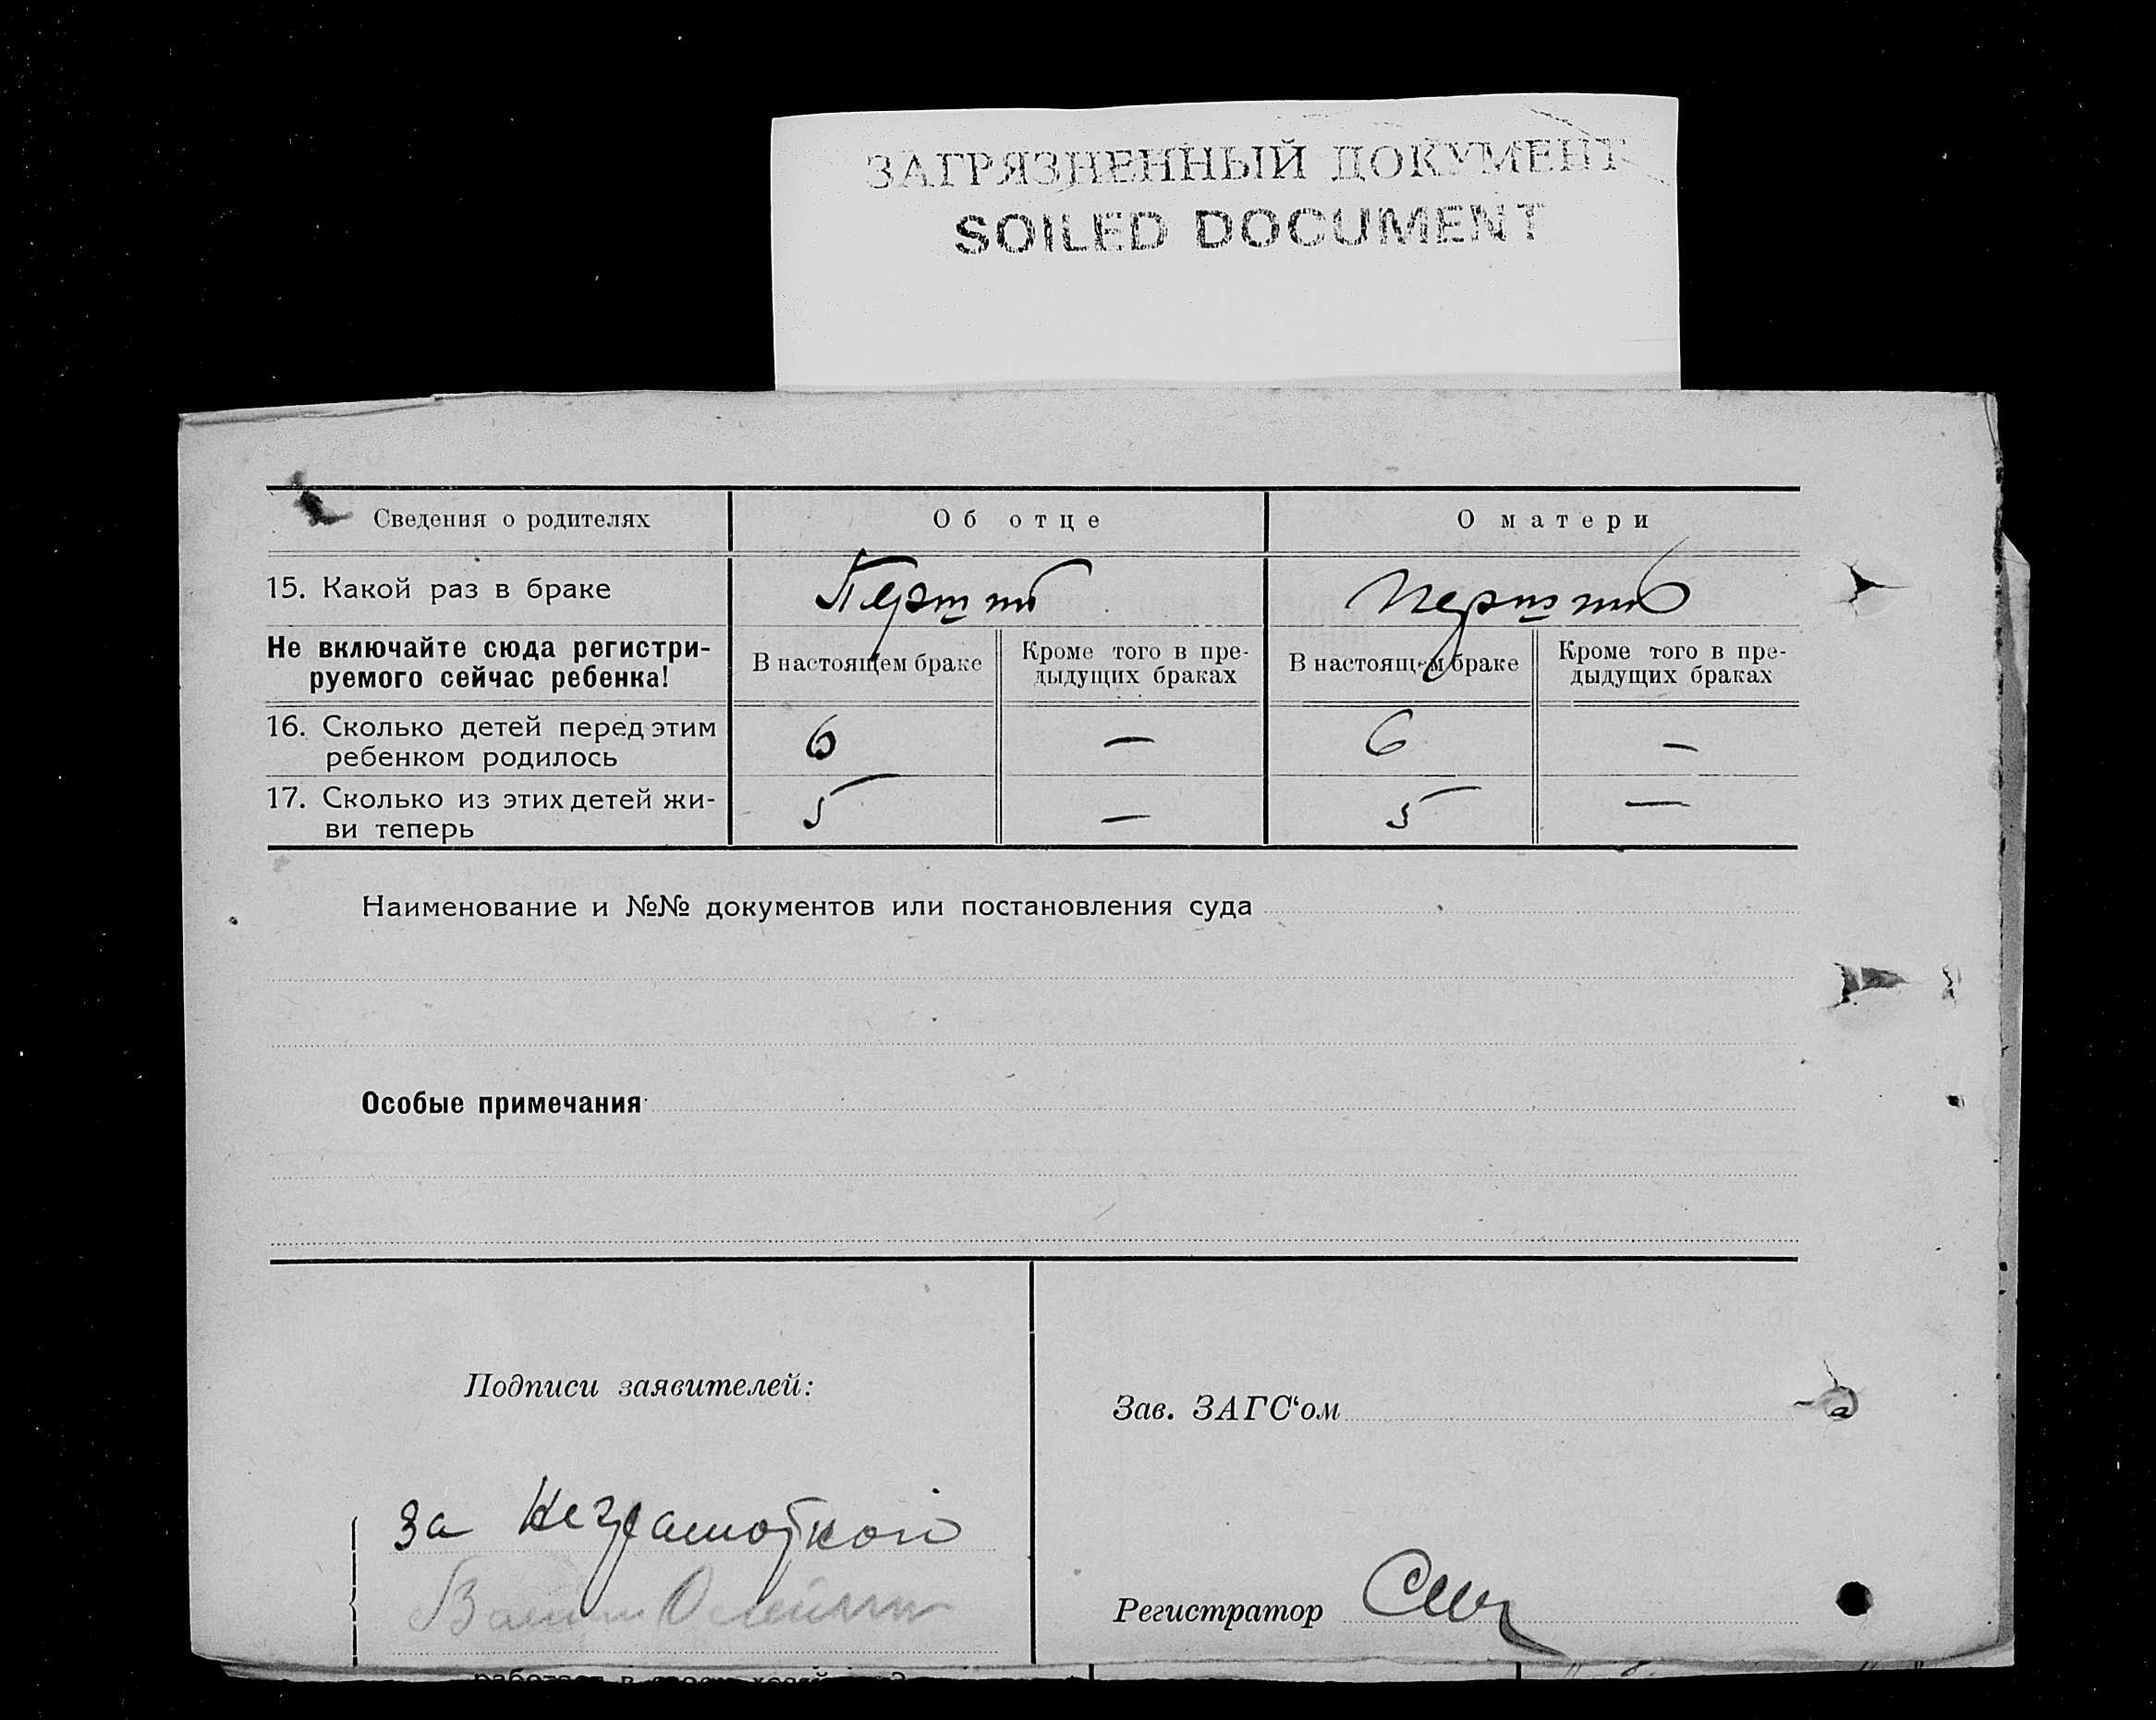 ЗАГРЯЗНЕННЫЙ ДОКУМЕНТ
SOILED DOCUMENT
Сведения о родителях
Об отце
О матери
15. Какой раз в браке
Не включайте сюда регистри-
руемого сейчас ребенка!
В настоящем браке
Кроме того в пре-
дыдущих браках
В настоящем браке
Кроме того в пре-
дыдущих браках
16. Сколько детей перед этим
ребенком родилось
6
—
6
—
17. Сколько из этих детей жи-
ви теперь
5
—
5
—
Наименование и №№ документов или постановления суда
Особые примечания
Подписи заявителей:
за неграмотной
Зав. ЗАГС‘ом
Регистратор